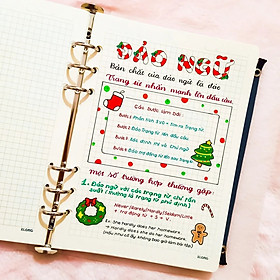 ĐẢO NGỮ
Bản chất của đảo ngữ là đảo
Trạng từ nhấn mạnh lên đầu câu.
Các bước làm bài
Bước 1: Phân tích S V O + tìm ra Trạng từ
Bước 2: Đảo Trạng từ lên đầu câu
Bước 3: Xác định thì và Chủ ngữ
Bước 4: Đảo trợ động từ lên sau Trạng từ
Một số trường hợp thường gặp:
1. Đảo ngữ với các trạng từ chỉ tần
suất (thường là trạng từ phủ định)
Never/Rarely/Hardly/Seldom/Little
+ trợ động từ + S + V.
She hardly does her homework.
→ Hardly does she do her homework.
(Hầu như cô ấy không bao giờ làm bài tập)
KLONG
KLONG